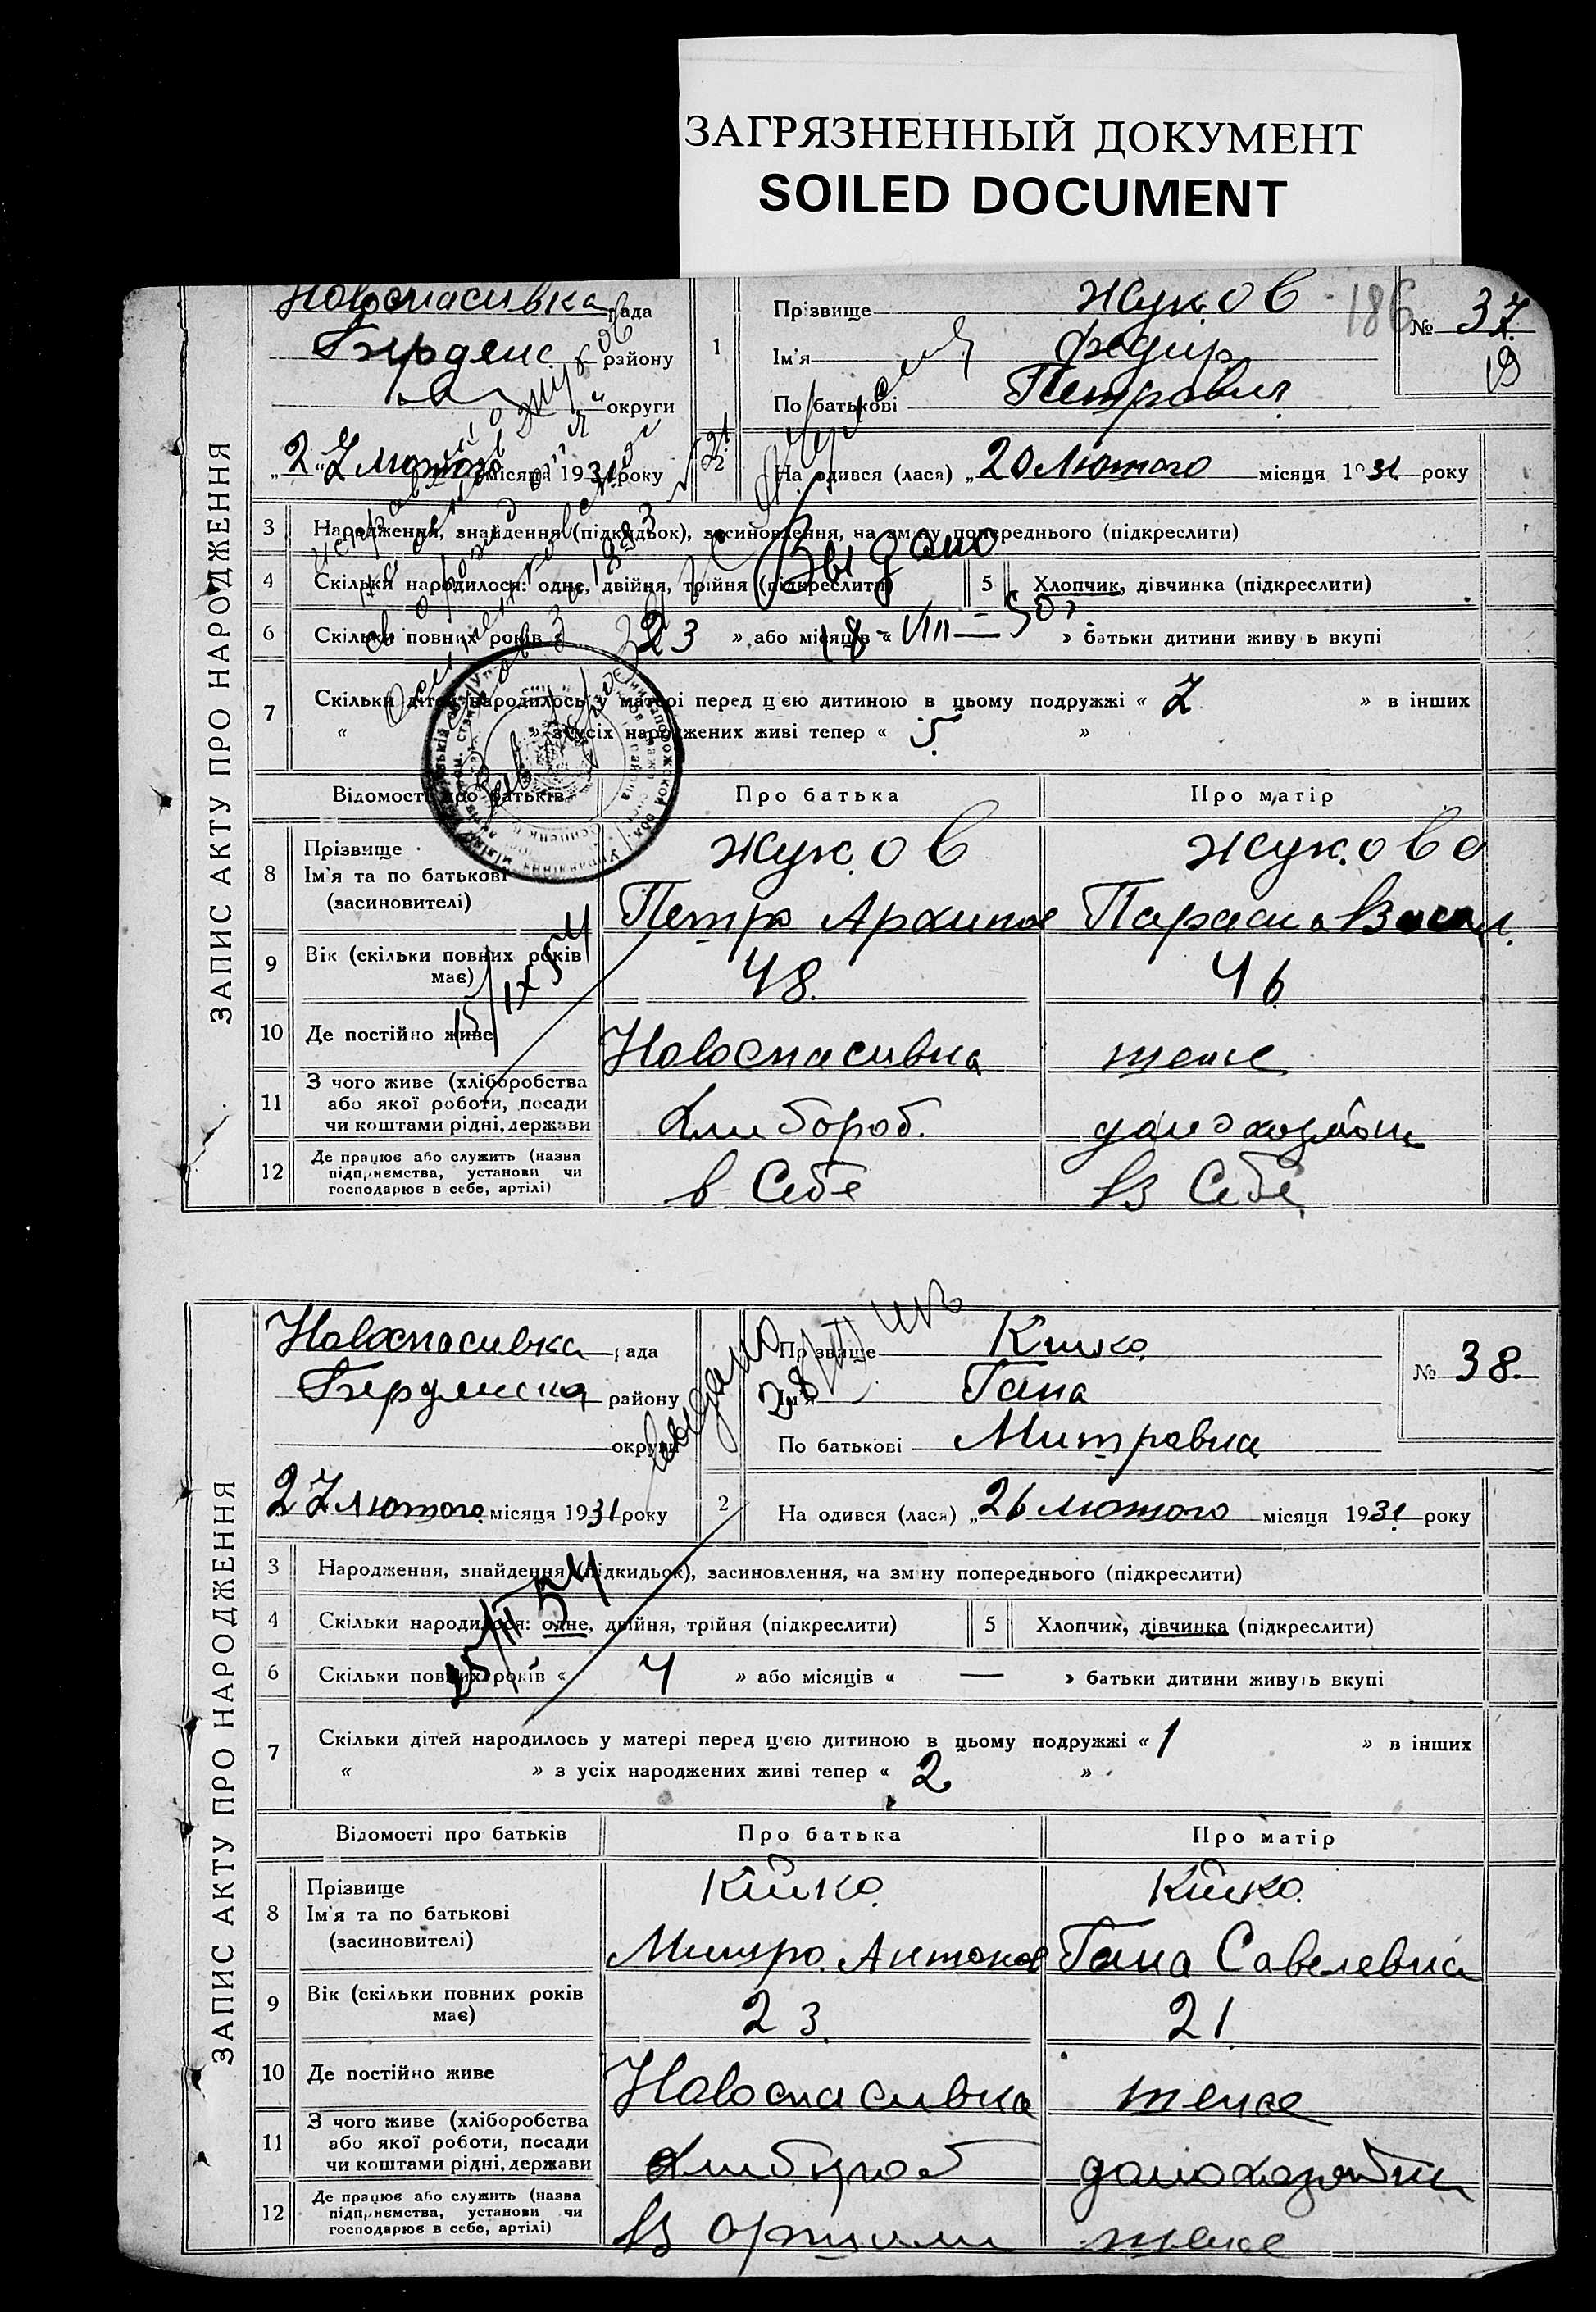 ЗАГРЯЗНЕННЫЙ ДОКУМЕНТ
SOILED DOCUMENT
ЗАПИС АКТУ ПРО НАРОДЖЕННЯ
Новоспасивка рада
Бердянс району
округи
27 лютого місяця 1931 року
1
Прізвище Жуков
Ім'я Федир
По батькові Петрович
186
№ 37
19
2
Народився (лася) „20 Лютого місяця 1931 року
3 Народження, знайдення (підкидьок), засиновлення, на зміну попереднього (підкреслити)
Выдано
4 Скільки народилося: одне, двійня, трійня (підкреслити)
5 Хлопчик, дівчинка (підкреслити)
6 Скільки повних років « 23 » або місяців « » батьки дитини живуть вкупі
18 - VIII — 50
7 Скільки дітей народилось у матері перед цією дитиною в цьому подружжі « 7 » в інших
« » з усіх народжених живі тепер « 5 »
Відомості про батьків Про батька Про матір
8 Прізвище Жуков Жукова
Ім'я та по батькові Петро Архипов Параска Васил.
(засиновителі)
9 Вік (скільки повних років має) 48. 46
15/IX 54
10 Де постійно живе Новоспасивка теже
11 З чого живе (хліборобства або якої роботи, посади чи коштами рідні, держави Хлибороб. домохозяйк
12 Де працює або служить (назва підприємства, установи чи господарює в себе, артілі) в Себе в Себе
ЗАПИС АКТУ ПРО НАРОДЖЕННЯ
Новоспасивка рада
Бердянска району
округи
27 лютого місяця 1931 року
выдано
1
Прізвище Кийко
Ім'я Гана
По батькові Митровна
№ 38
2
Народився (лася) „26 Лютого місяця 1931 року
3 Народження, знайдення (підкидьок), засиновлення, на зміну попереднього (підкреслити)
4 Скільки народилося: одне, двійня, трійня (підкреслити)
5 Хлопчик, дівчинка (підкреслити)
6 Скільки повних років « 4 » або місяців « — » батьки дитини живуть вкупі
7 Скільки дітей народилось у матері перед цією дитиною в цьому подружжі « 1 » в інших
« » з усіх народжених живі тепер « 2 »
Відомості про батьків Про батька Про матір
8 Прізвище Кийко. Кийко.
Ім'я та по батькові Митро Антонов Гана Савелевна
(засиновителі)
9 Вік (скільки повних років має) 23. 21
10 Де постійно живе Новоспасивка теже
11 З чого живе (хліборобства або якої роботи, посади чи коштами рідні, держави Хлибороб домохазяйки
12 Де працює або служить (назва підприємства, установи чи господарює в себе, артілі) в артили теже